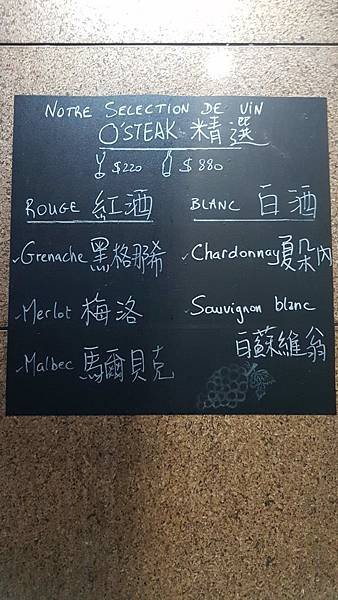 NOTRE SELECTION DE VIN
O'STEAK 精選
$220 $880
ROUGE 紅酒
Grenache 黑格那希
Merlot 梅洛
Malbec 馬爾貝克
BLANC 白酒
Chardonnay 夏朵內
Sauvignon blanc
白蘇維翁